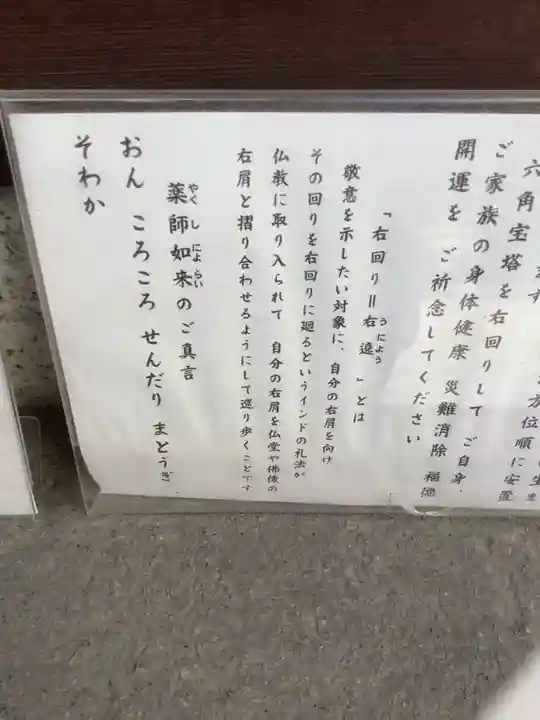 方位順に安置
ます
六角宝塔を右回りして ご自身・
ご家族の身体健康 災難消除 福徳
開運を ご祈念してください
「右回り＝右遶うにょう」とは
敬意を示したい対象に、自分の右肩を向け
その回りを右回りに廻るというインドの礼法が
仏教に取り入られて 自分の右肩を仏堂や佛像の
右肩と摺り合わせるようにして巡り歩くことです
薬師如来やくしにょらいのご真言
おん ころころ せんだり まとうぎ
そわか